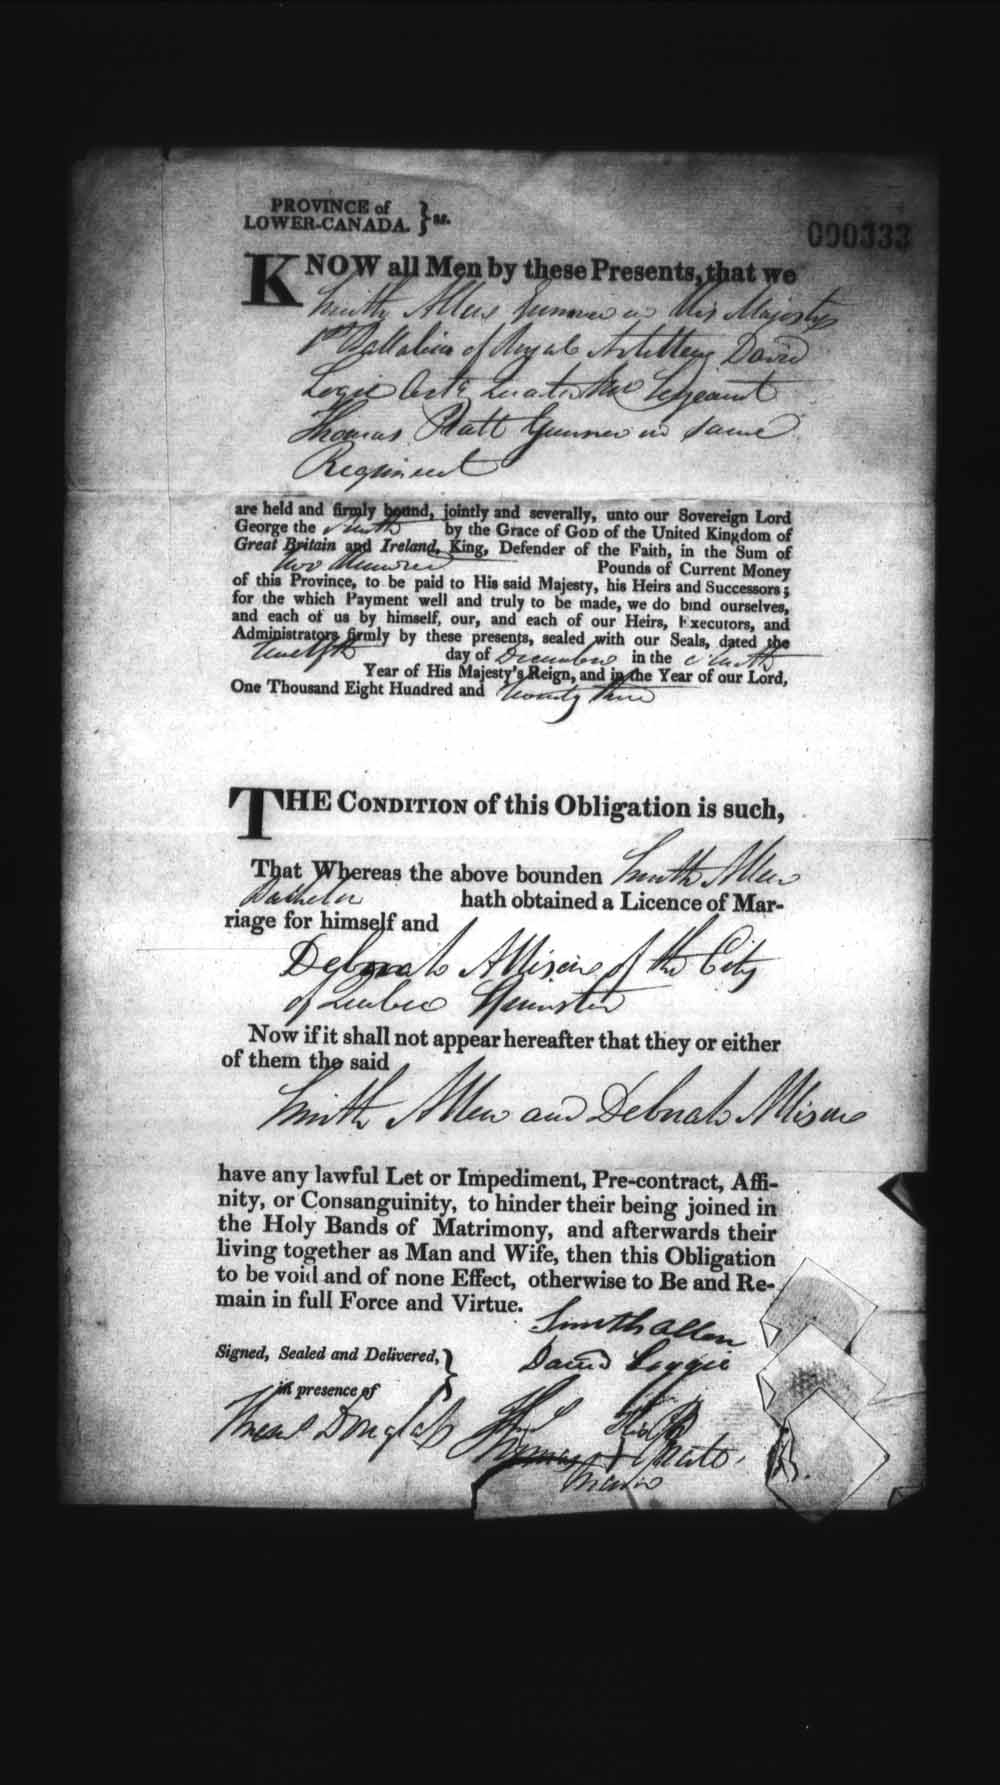 PROVINCE of
LOWER-CANADA. } ss.
000333
KNOW all Men by these Presents, that we
Smith Allen Gunner in His Majestys
1st Battalion of Royal Artillery David
Logie Quarter Sergeant
Thomas Platt Gunner in same
Regiment
are held and firmly bound, jointly and severally, unto our Sovereign Lord
George the fourth by the Grace of GOD of the United Kingdom of
Great Britain and Ireland, King, Defender of the Faith, in the Sum of
two Hundred Pounds of Current Money
of this Province, to be paid to His said Majesty, his Heirs and Successors;
for the which Payment well and truly to be made, we do bind ourselves,
and each of us by himself, our, and each of our Heirs, Executors, and
Administrators firmly by these presents, sealed with our Seals, dated the
twelfth day of December in the fourth
Year of His Majesty's Reign, and in the Year of our Lord,
One Thousand Eight Hundred and twenty three
THE CONDITION of this Obligation is such,
That Whereas the above bounden Smith Allen
Bachelor hath obtained a Licence of Mar-
riage for himself and
Deborah Allison of the City
of Quebec Spinster
Now if it shall not appear hereafter that they or either
of them the said
Smith Allen and Deborah Allison
have any lawful Let or Impediment, Pre-contract, Affi-
nity, or Consanguinity, to hinder their being joined in
the Holy Bands of Matrimony, and afterwards their
living together as Man and Wife, then this Obligation
to be void and of none Effect, otherwise to Be and Re-
main in full Force and Virtue.
Smith allen
Signed, Sealed and Delivered, }
David Loggie
in presence of
Douglas
Thomas his + Platt
mark